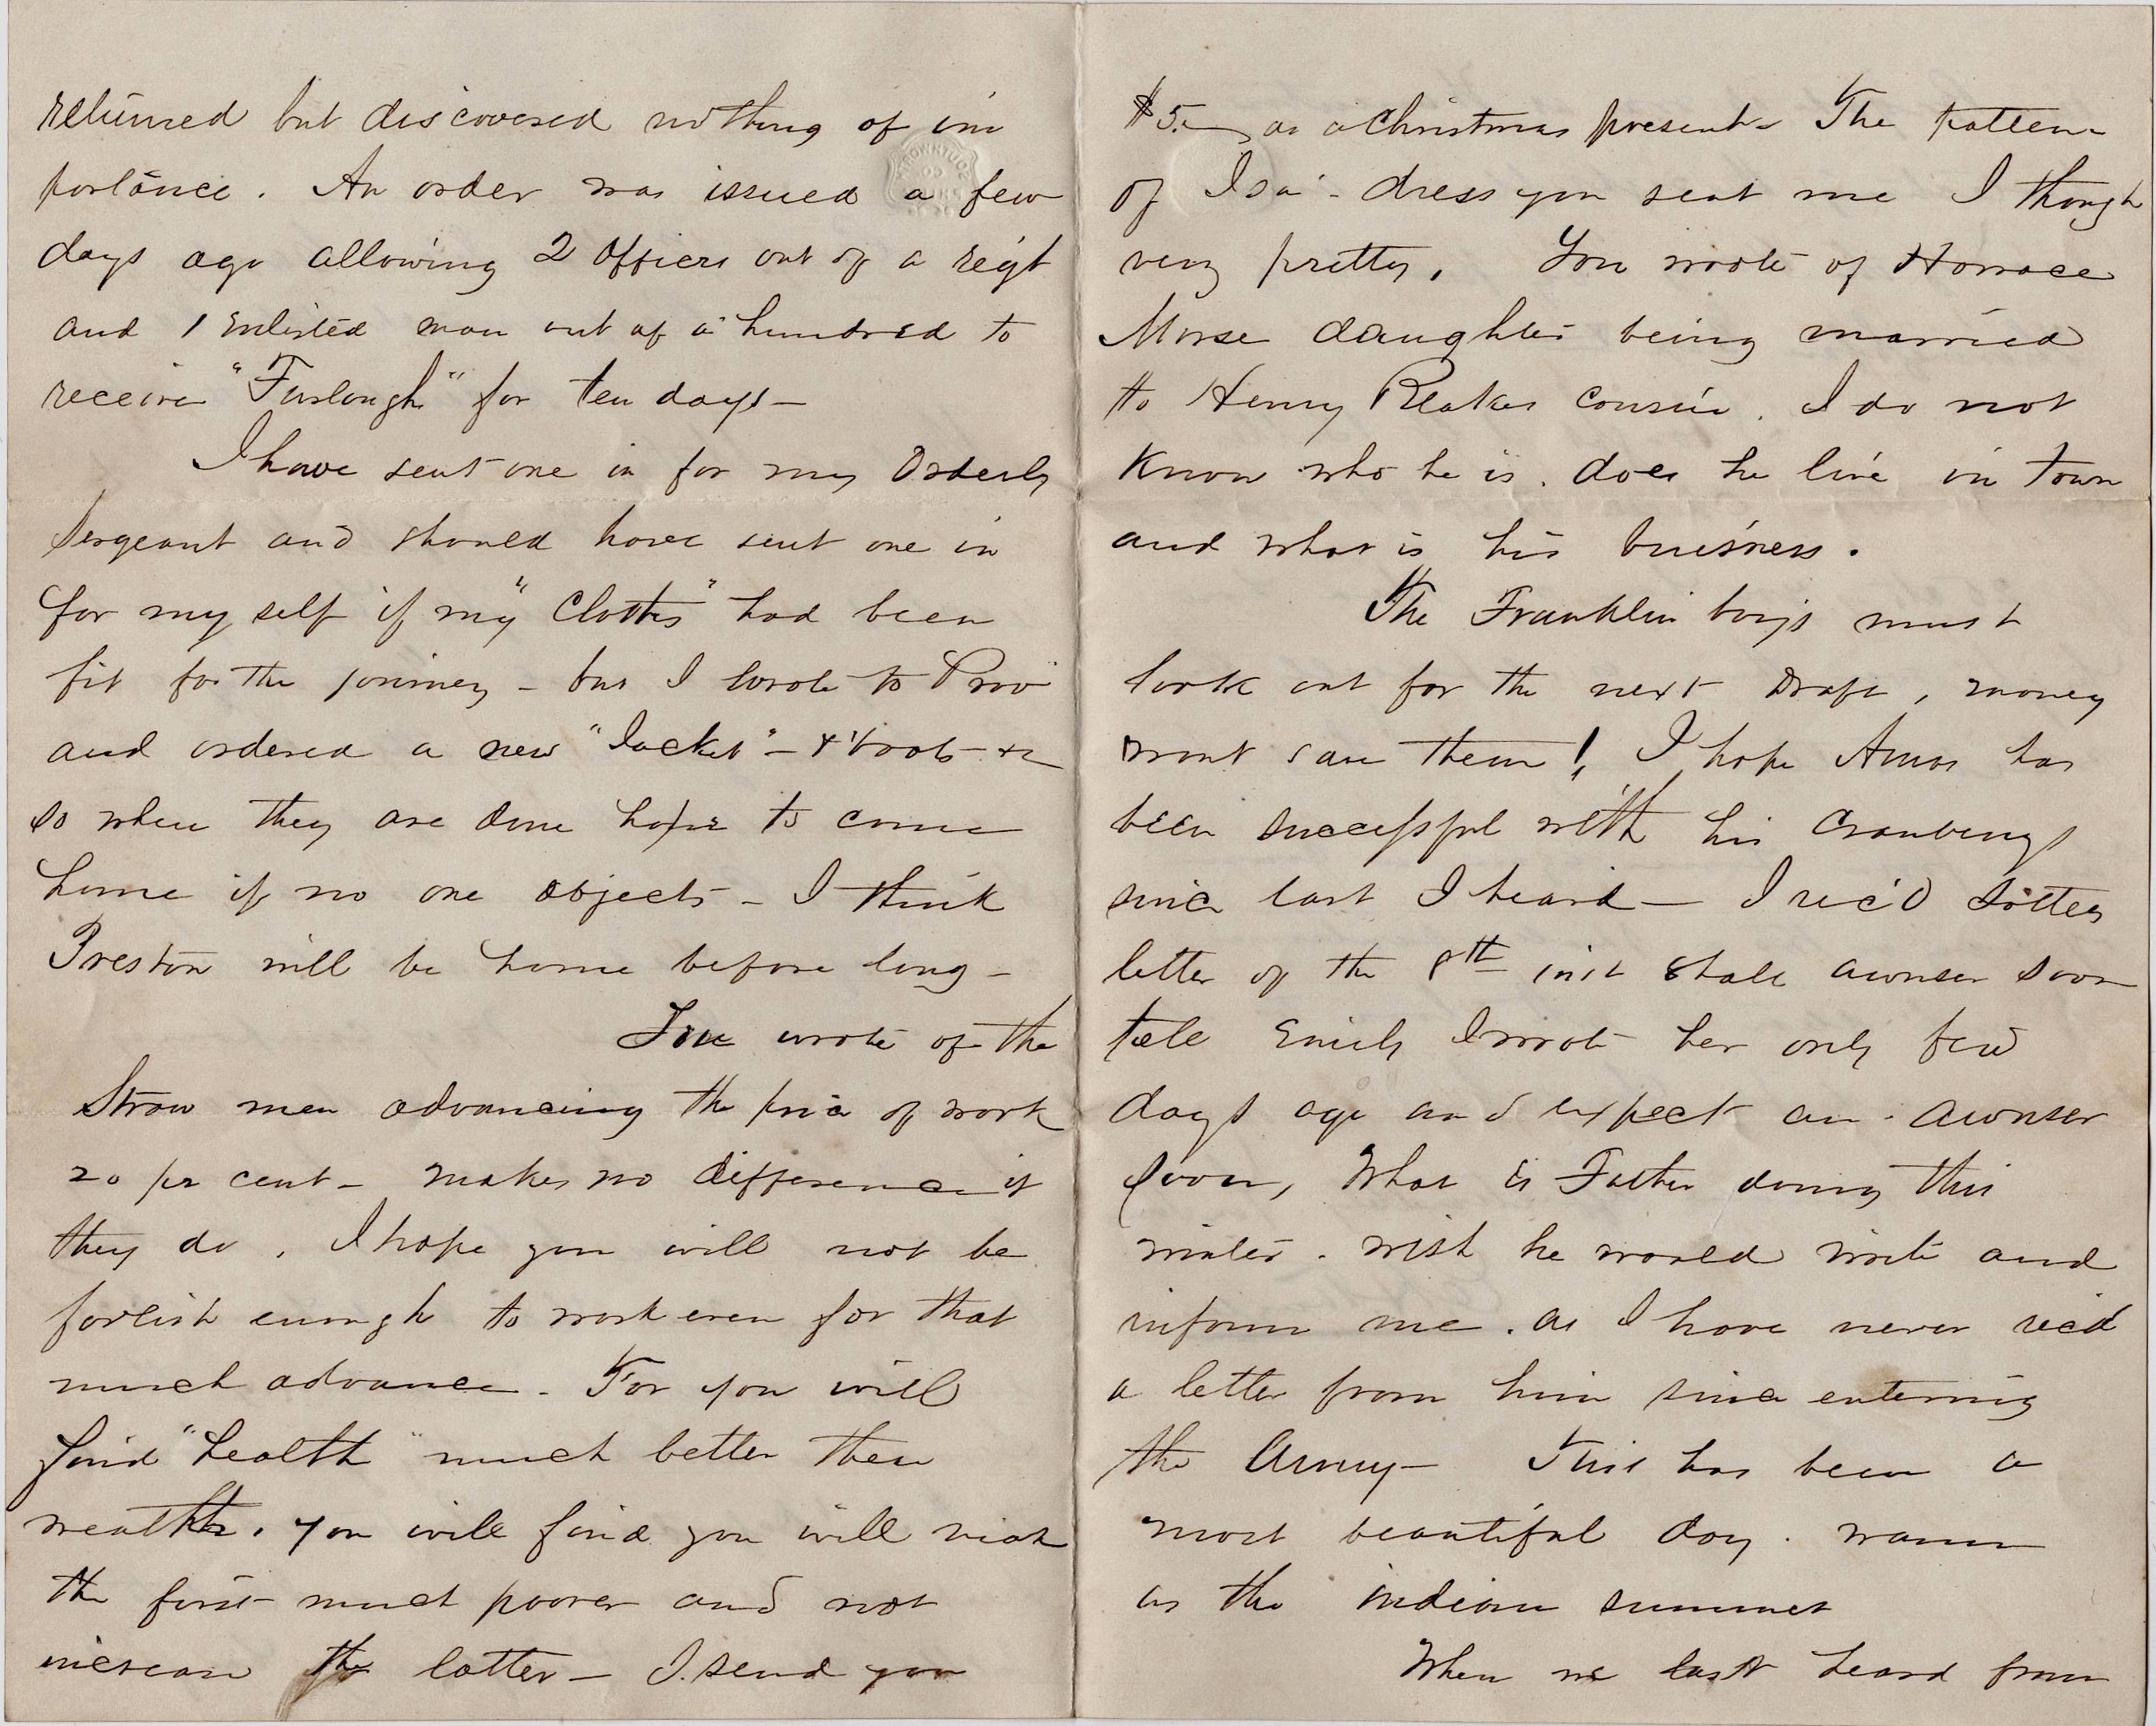 returned but discovered nothing of im
portance. An order was issued a few
days ago allowing 2 Officers out of a regt
and 1 Enlisted man out of a hundred to
receive "Furlough" for ten days—
I have sent one in for my Orderly
Sergeant and should have sent one in
for my self if my "Cloths" had been
fit for the journey - but I wrote to Prov
and ordered a new "Jacket" - & "boots &c
so when they are done hope to come
home if no one objects - I think
Preston will be home before long -
You wrote of the
Straw men advancing the price of work
20 per cent - makes no difference if
they do. I hope you will not be
foolish enough to work even for that
much advance. For you will
find "health" much better then
wealth. you will find you will
the first much poorer and not
increase the latter - I send you
$5. as a christmas present - The pattern
of Isa dress you sent me I though
very pretty. You wrote of Horrace
Morse daughter being married
to Henry cousin. I do not
know who he is. does he live in town
and what is his buisness.
The Franklin boys must
look out for the next Draft, money
wont save them! I hope Amos has
been successful with his Cranberrys
since last I heard — I rec'd
letter of the 8th inst shall awnser soon
tell Emily I wrote her only few
days ago and expect an awnser
soon, What is Father doing this
winter. wish he would write and
inform me. as I have never rec'd
a letter from him since entering
the Army — This has been a
most beautiful day. warm
as the indian summer
When we last heard from